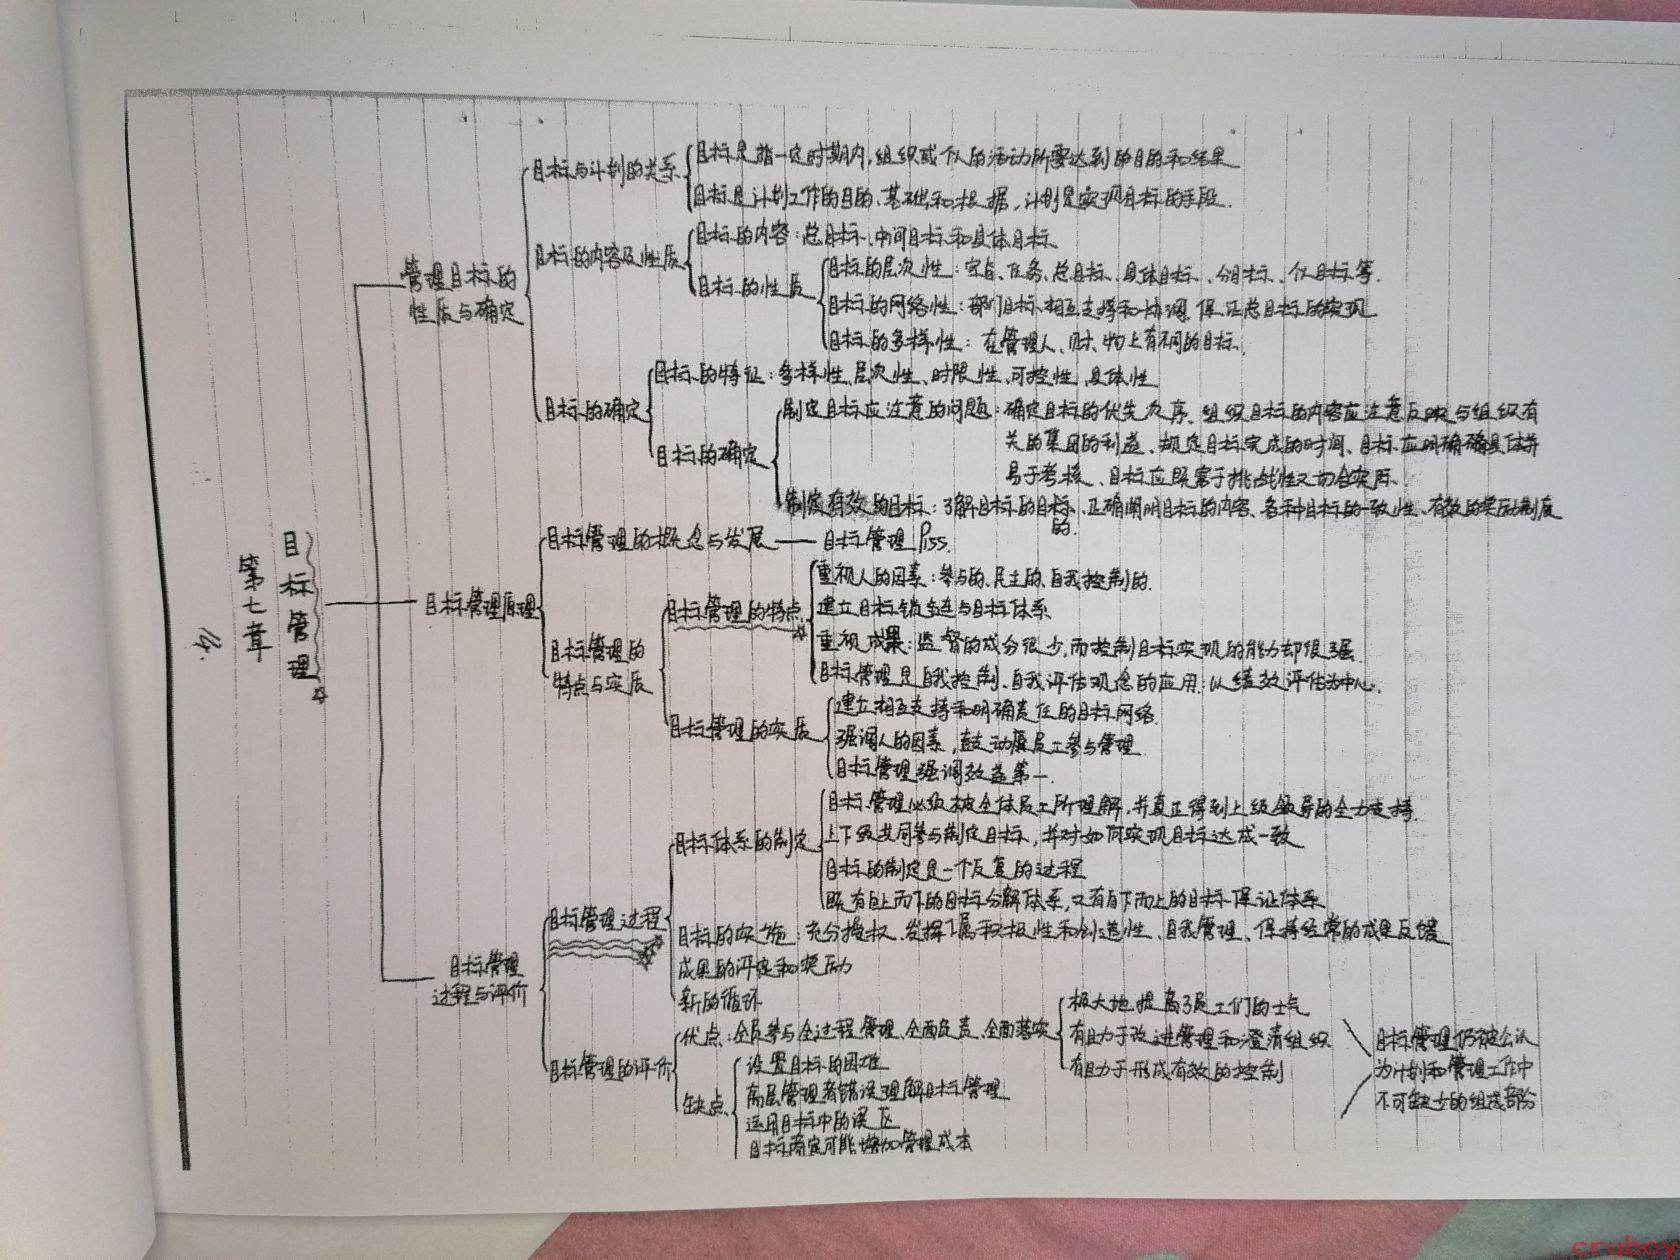 第七章
目标管理
管理目标的
性质与确定
目标与计划的关系
目标是指一定时期内,组织或个人的活动所要达到的目的和结果
目标是计划工作的目的、基础和根据,计划是实现目标的手段.
目标的内容及性质
目标的内容:总目标、中间目标和具体目标
目标的性质
目标的层次性:宗旨、任务、总目标、具体目标、分目标、个人目标等.
目标的网络性:部门目标相互支撑和协调,保证总目标的实现
目标的多样性:在管理人、财、物上有不同的目标.
目标的确定
目标的特征:多样性、层次性、时限性、可控性、具体性
目标的确定
制定目标应注意的问题:确定目标的优先次序、组织目标的内容应注意反映与组织有
关的集团的利益、规定目标完成的时间、目标应明确具体并
易于考核、目标应既富于挑战性又切合实际
制定有效的目标:了解目标的目标、正确阐明目标的内容、各种目标的一致性、有效的奖励制度
的.
目标管理原理
目标管理的概念与发展
目标管理 P155.
目标管理的
特点与实质
目标管理的特点
重视人的因素:参与的、民主的、自我控制的.
建立目标锁链与目标体系
重视成果:监督的成分很少,而控制目标实现的能力却很强
目标管理是自我控制、自我评估观念的应用:以绩效评估为中心.
目标管理的实质
建立相互支持和明确责任的目标网络
强调人的因素,鼓动雇员工参与管理
目标管理强调效益第一.
目标管理
过程与评价
目标管理过程
目标体系的制定
目标管理必须被全体员工所理解,并真正得到上级领导的全力支持.
上下级共同参与制定目标,并对如何实现目标达成一致
目标的制定是一个反复的过程
既有自上而下的目标分解体系,又有自下而上的目标保证体系
目标的实施:充分授权、发挥下属积极性和创造性、自我管理、保持经常的成果反馈
成果的评定和奖励
新的循环
目标管理的评价
优点:全员参与全过程管理、全面负责、全面落实
极大地提高了员工们的士气
有助于改进管理和澄清组织
有助于形成有效的控制
目标管理仍被公认
为计划和管理工作中
不可缺少的组成部分
缺点
设置目标的困难
高层管理者错误理解目标管理
运用目标中的误区
目标商定可能增加管理成本
cruboy